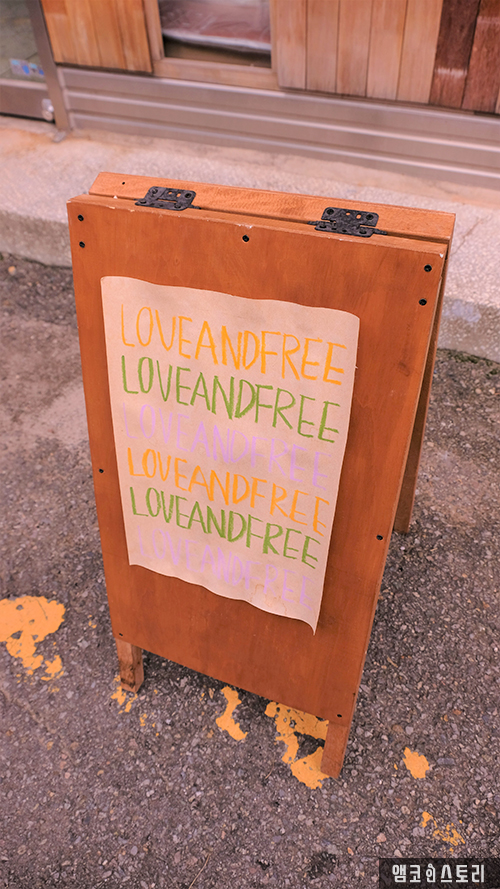 LOVEANDFREE
LOVEANDFREE
LOVEANDFREE
LOVEANDFREE
LOVEANDFREE
LOVEANDFREE
앰코인스토리